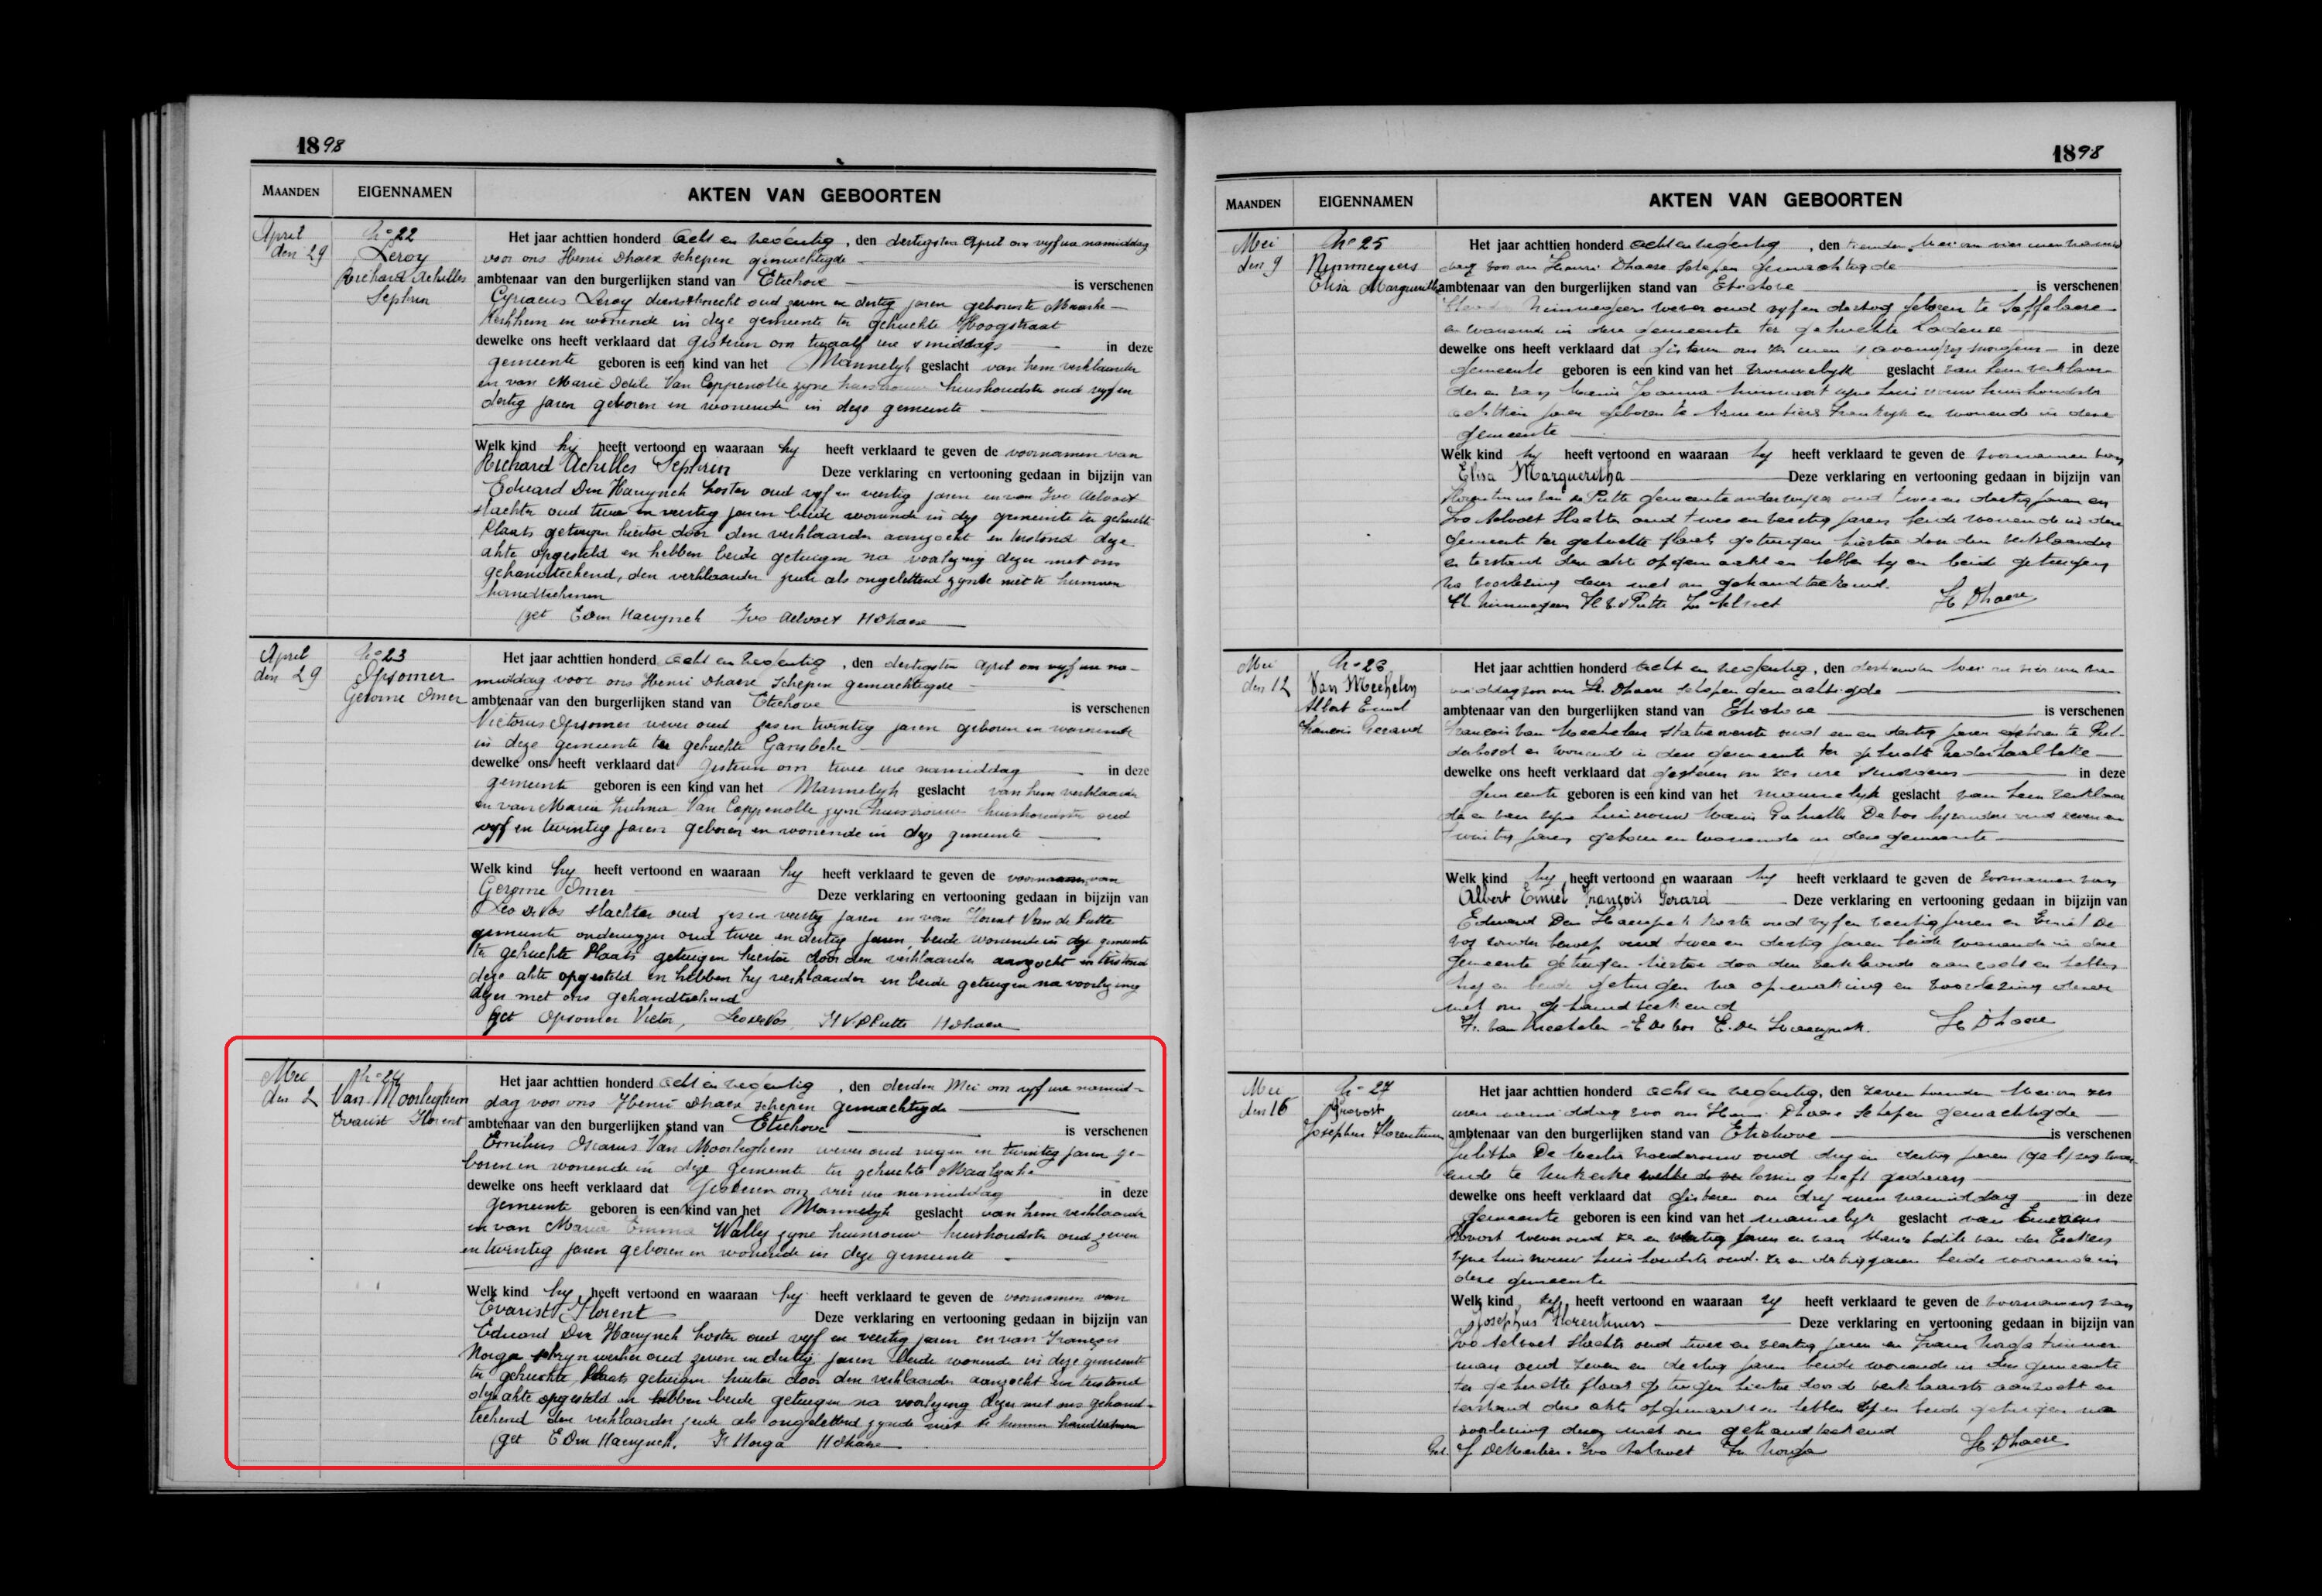 1898
MAANDEN EIGENNAMEN AKTEN VAN GEBOORTEN
April den 29
No 22
Leroy
Richard Achilles
Sephrin
Het jaar achttien honderd acht en negentig, den dertigsten April om vyf ure namiddag
voor ons Henri Dhaere schepen gemachtigde
ambtenaar van den burgerlijken stand van Etichove is verschenen
Cyriacus Leroy dienstknecht oud zeven en dertig jaren geboren te Maarke-
Kerkhem en wonende in deze gemeente ter gehuchte Hoogstraat
dewelke ons heeft verklaard dat gisteren om twaalf ure smiddags in deze
gemeente geboren is een kind van het Mannelyk geslacht van hem verklaarder
en van Marie Odile Van Coppenolle zyne huisvrouw huishoudster oud vyf en
dertig jaren geboren en wonende in deze gemeente
Welk kind hy heeft vertoond en waaraan hy heeft verklaard te geven de voornamen van
Richard Achilles Sephrin Deze verklaring en vertooning gedaan in bijzijn van
Eduard Den Haerynck koster oud vyf en veertig jaren en van Ivo Aelvoet
slachter oud twee en veertig jaren beide wonende in deze gemeente ter gehuchte
Plaats getuigen hiertoe door den verklaarder aanzocht en terstond deze
akte opgesteld en hebben beide getuigen na voorlezing dezer met ons
gehandteekend, den verklaarder zeide als ongeletterd zynde niet te kunnen
handteekenen
get E Den Haerynck Ivo Aelvoet H Dhaere
April den 29
No 23
Opsomer
Gerome Omer
Het jaar achttien honderd acht en negentig, den dertigsten April om vyf ure na-
middag voor ons Henri Dhaere schepen gemachtigde
ambtenaar van den burgerlijken stand van Etichove is verschenen
Victorus Opsomer wever oud zes en twintig jaren geboren en wonende
in deze gemeente ter gehuchte Gansbeke
dewelke ons heeft verklaard dat gisteren om twee ure namiddag in deze
gemeente geboren is een kind van het Mannelyk geslacht van hem verklaarder
en van Maria Van Coppenolle zyne huisvrouw huishoudster oud
vyf en twintig jaren geboren en wonende in deze gemeente
Welk kind hy heeft vertoond en waaraan hy heeft verklaard te geven de voornamen van
Gerome Omer Deze verklaring en vertooning gedaan in bijzijn van
Leo De Vos slachter oud zes en veertig jaren en van Florent Van de Putte
gemeente onderwyzer oud twee en dertig jaren, beide wonende in deze gemeente
ter gehuchte Plaats getuigen hiertoe door den verklaarder aanzocht en terstond
deze akte opgesteld en hebben hy verklaarder en beide getuigen na voorlezing
dezer met ons gehandteekend
get Opsomer Victor, Leo De Vos, H V D Putte H Dhaere
Mei den 2
No 24
Van Moorleghem
Evarist Florent
Het jaar achttien honderd acht en negentig, den derden Mei om vyf ure namid-
dag voor ons Henri Dhaere schepen gemachtigde
ambtenaar van den burgerlijken stand van Etichove is verschenen
Emilius Oscarus Van Moorleghem wever oud negen en twintig jaren ge-
boren en wonende in deze gemeente ter gehuchte Maalzake
dewelke ons heeft verklaard dat Gisteren om vier ure namiddag in deze
gemeente geboren is een kind van het Mannelyk geslacht van hem verklaarder
en van Maria Emma Wally zyne huisvrouw huishoudster oud zeven
en twintig jaren geboren en wonende in deze gemeente
Welk kind hy heeft vertoond en waaraan hy heeft verklaard te geven de voornamen van
Evarist Florent Deze verklaring en vertooning gedaan in bijzijn van
Eduard Den Haerynck koster oud vyf en veertig jaren en van François
Norga schrynwerker oud zeven en dertig jaren beide wonende in deze gemeente
ter gehuchte Plaats getuigen hiertoe door den verklaarder aanzocht en terstond
deze akte opgesteld en hebben beide getuigen na voorlezing dezer met ons gehand-
teekend den verklaarder zeide als ongeletterd zynde niet te kunnen handteekenen
get E Den Haerynck, Fr Norga H Dhaere
1898
MAANDEN EIGENNAMEN AKTEN VAN GEBOORTEN
Mei den 9
No 25
Nimmegeers
Elisa Margueritha
Het jaar achttien honderd acht en negentig, den tienden Mei om vier uren namid
dag voor ons Henri Dhaere schepen gemachtigde
ambtenaar van den burgerlijken stand van Etichove is verschenen
Nimmegeers wever oud vyf en dertig geboren te Saffelaere
en wonende in deze gemeente ter gehuchte Ladeuze
dewelke ons heeft verklaard dat gisteren om zes uren 's morgens in deze
gemeente geboren is een kind van het vrouwelyk geslacht van hem verklaar-
der en van Maria Joanna zyne huisvrouw huishoudster
achttien jaren geboren te Armentiers Frankryk en wonende in deze
gemeente
Welk kind hy heeft vertoond en waaraan hy heeft verklaard te geven de voornamen van
Elisa Margueritha Deze verklaring en vertooning gedaan in bijzijn van
Florentinus Van de Putte gemeenteonderwyzer oud twee en dertig jaren en
Ivo Aelvoet slachter oud twee en veertig jaren beide wonende in deze
gemeente ter gehuchte plaats getuigen hiertoe door den verklaarder
en terstond deze akte opgemaakt en hebben hy en beide getuigen
na voorlezing dezer met ons gehandteekend.
Nimmegeers Fl V d Putte Ivo Aelvoet H Dhaere
Mei den 12
No 26
Van Mechelen
Albert Emiel
François Gerard
Het jaar achttien honderd acht en negentig, den dertienden Mei om vier uren na-
middag voor ons H. Dhaere schepen gemachtigde
ambtenaar van den burgerlijken stand van Etichove is verschenen
François Van Mechelen statieoverste oud een en dertig jaren geboren te
en wonende in deze gemeente ter gehucht Nederhaelbeke
dewelke ons heeft verklaard dat gisteren om zes ure in deze
gemeente geboren is een kind van het mannelyk geslacht van hem verklaar
der en van zyne huisvrouw Maria De Vos byzondere oud zeven en
twintig jaren geboren en wonende in deze gemeente
Welk kind hy heeft vertoond en waaraan hy heeft verklaard te geven de voornamen van
Albert Emiel François Gerard Deze verklaring en vertooning gedaan in bijzijn van
Eduard Den Haerynck koster oud vyf en veertig jaren en Emiel De
Vos zonder beroep oud twee en dertig jaren beide wonende in deze
gemeente getuigen hiertoe door den verklaarder aanzocht en hebben
hy en beide getuigen na opmaking en voorlezing dezer
met ons gehandteekend
Fr. Van Mechelen E De Vos E. Den Haerynck. H Dhaere
Mei den 16
No 27
Prevost
Josephus Florentinus
Het jaar achttien honderd acht en negentig, den zeventienden Mei om zes
uren namiddag voor ons Henri Dhaere schepen gemachtigde
ambtenaar van den burgerlijken stand van Etichove is verschenen
Julitha De Merlier vroedvrouw oud dry en dertig jaren
te Nukerke welke de verlossing heeft gedaan
dewelke ons heeft verklaard dat gisteren om dry uren namiddag in deze
gemeente geboren is een kind van het mannelyk geslacht van
Prevost wever oud zes en veertig jaren en van Maria Odile Van der Eecken
zyne huisvrouw huishoudster oud zes en dertig jaren beide wonende in
deze gemeente
Welk kind zy heeft vertoond en waaraan zy heeft verklaard te geven de voornamen van
Josephus Florentinus Deze verklaring en vertooning gedaan in bijzijn van
Ivo Aelvoet slachter oud twee en veertig jaren en Frans Norga timmer
man oud zeven en dertig jaren beide wonende in deze gemeente
ter gehuchte plaats getuigen hiertoe door de verklaarster aanzocht en
terstond deze akte opgemaakt en hebben zy en beide getuigen na
voorlezing dezer met ons gehandteekend
Get. J De Merlier. Ivo Aelvoet Fr Norga H Dhaere